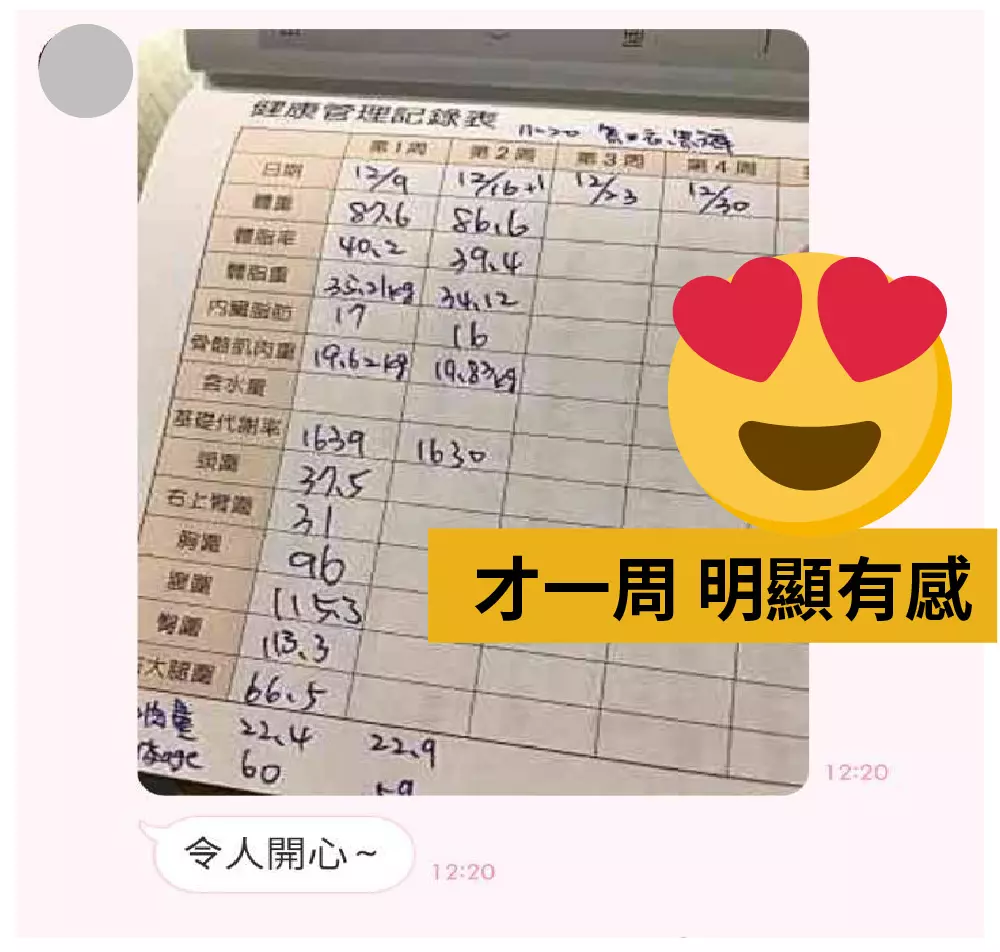 健康管理記錄表
第1周 第2周 第3周 第4周
日期 12/9 12/16+1 12/23 12/30
體重 87.6 86.6
體脂率 40.2 39.4
體脂重 35.21kg 34.12
內臟脂肪 17 16
骨骼肌肉重 19.62kg 19.83kg
含水量
基礎代謝率 1639 1630
頸圍 37.5
右上臂圍 31
胸圍 96
腰圍 115.3
臀圍 113.3
右大腿圍 66.5
22.4 22.9
60
才一周 明顯有感
12:20
令人開心~
12:20